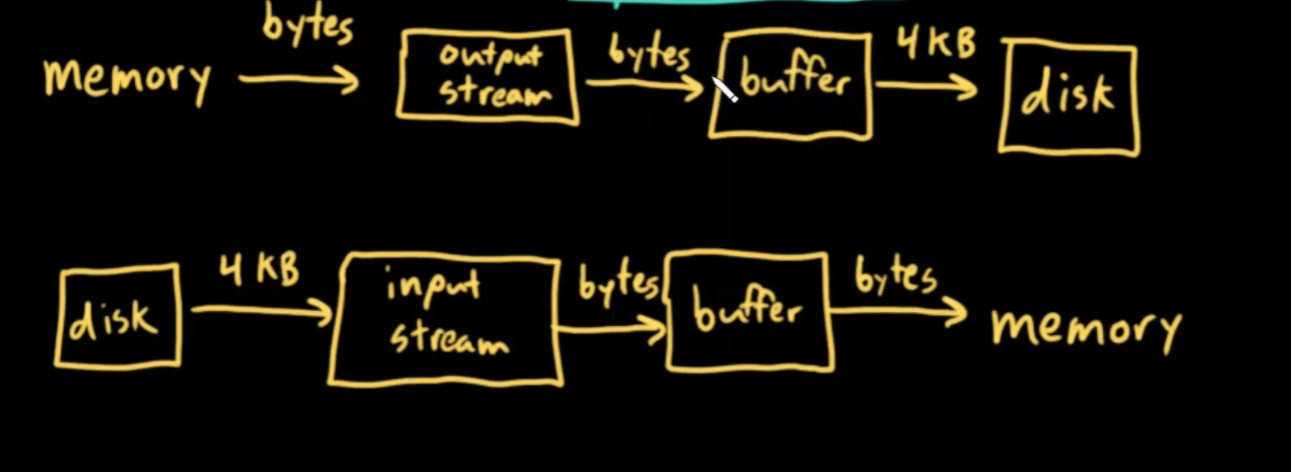 bytes
memory
output
stream
bytes
buffer
4 KB
disk
disk
4 KB
input
stream
bytes
buffer
bytes
memory